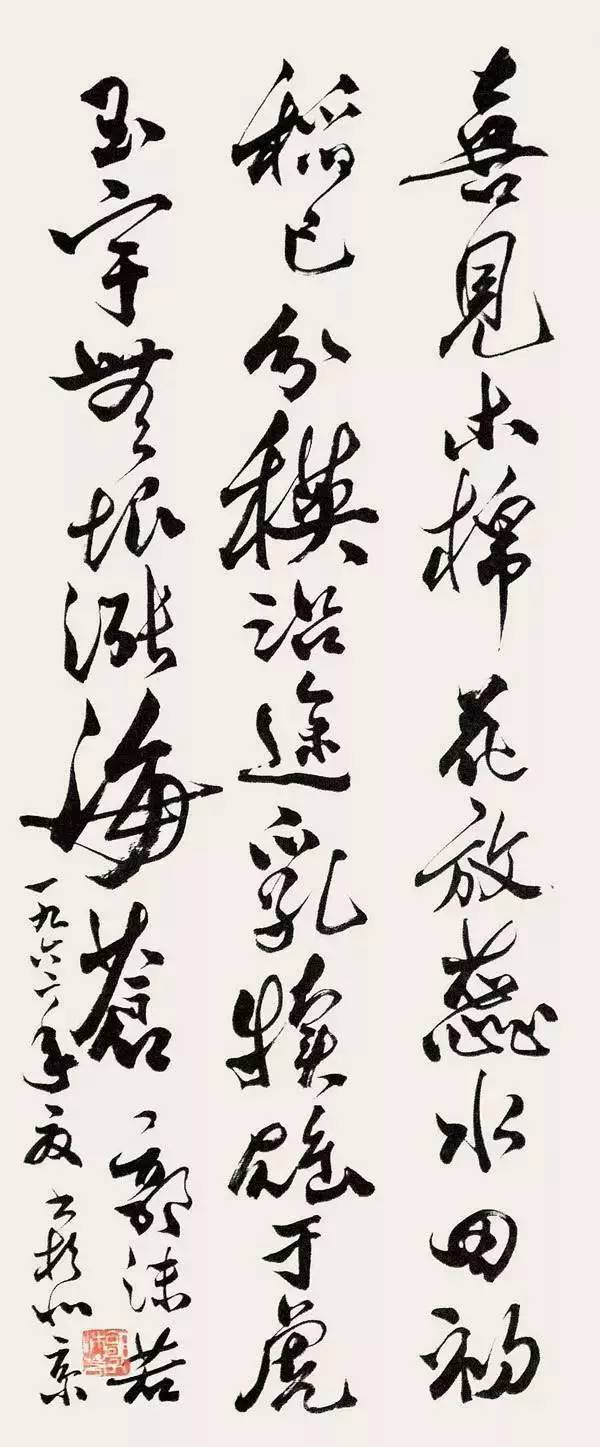 喜見木棉花放蕊水田初
稻已分秧沿途乳犢于虎
玉宇無垠漲海蒼
郭沫若
一九六二年夏書於北京